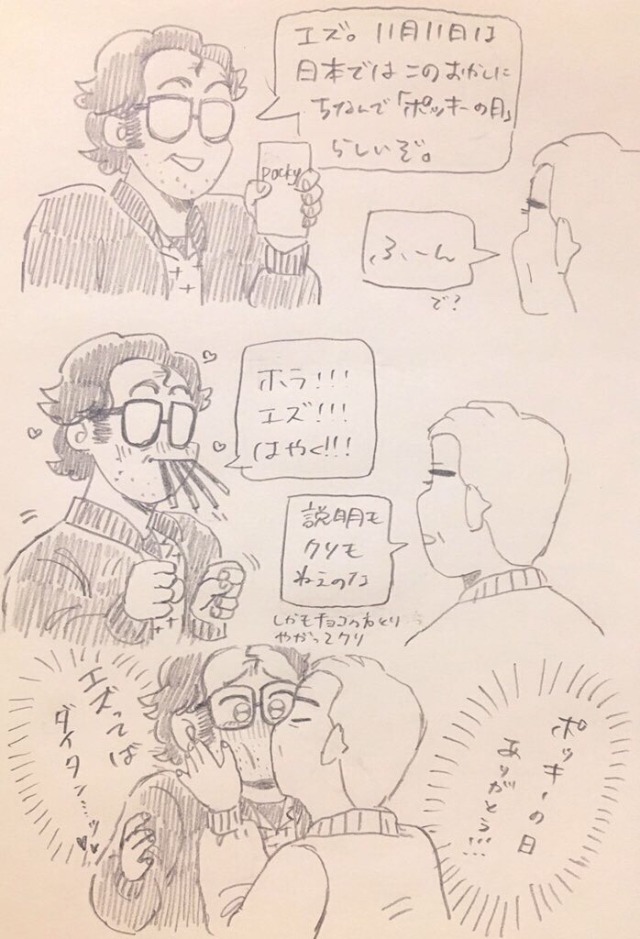 エズ。11月11日は
日本ではこのおかしに
ちなんで「ポッキーの日」
らしいぞ。
pocky
ふーん
で?
ホラ!!!
エズ!!!
はやく!!!
説明も
クソも
ねぇのな
しかもチョコの方とり
やがってクソ
エズってば
ダイタン…ッ
ポッキーの日
ありがとう!!!